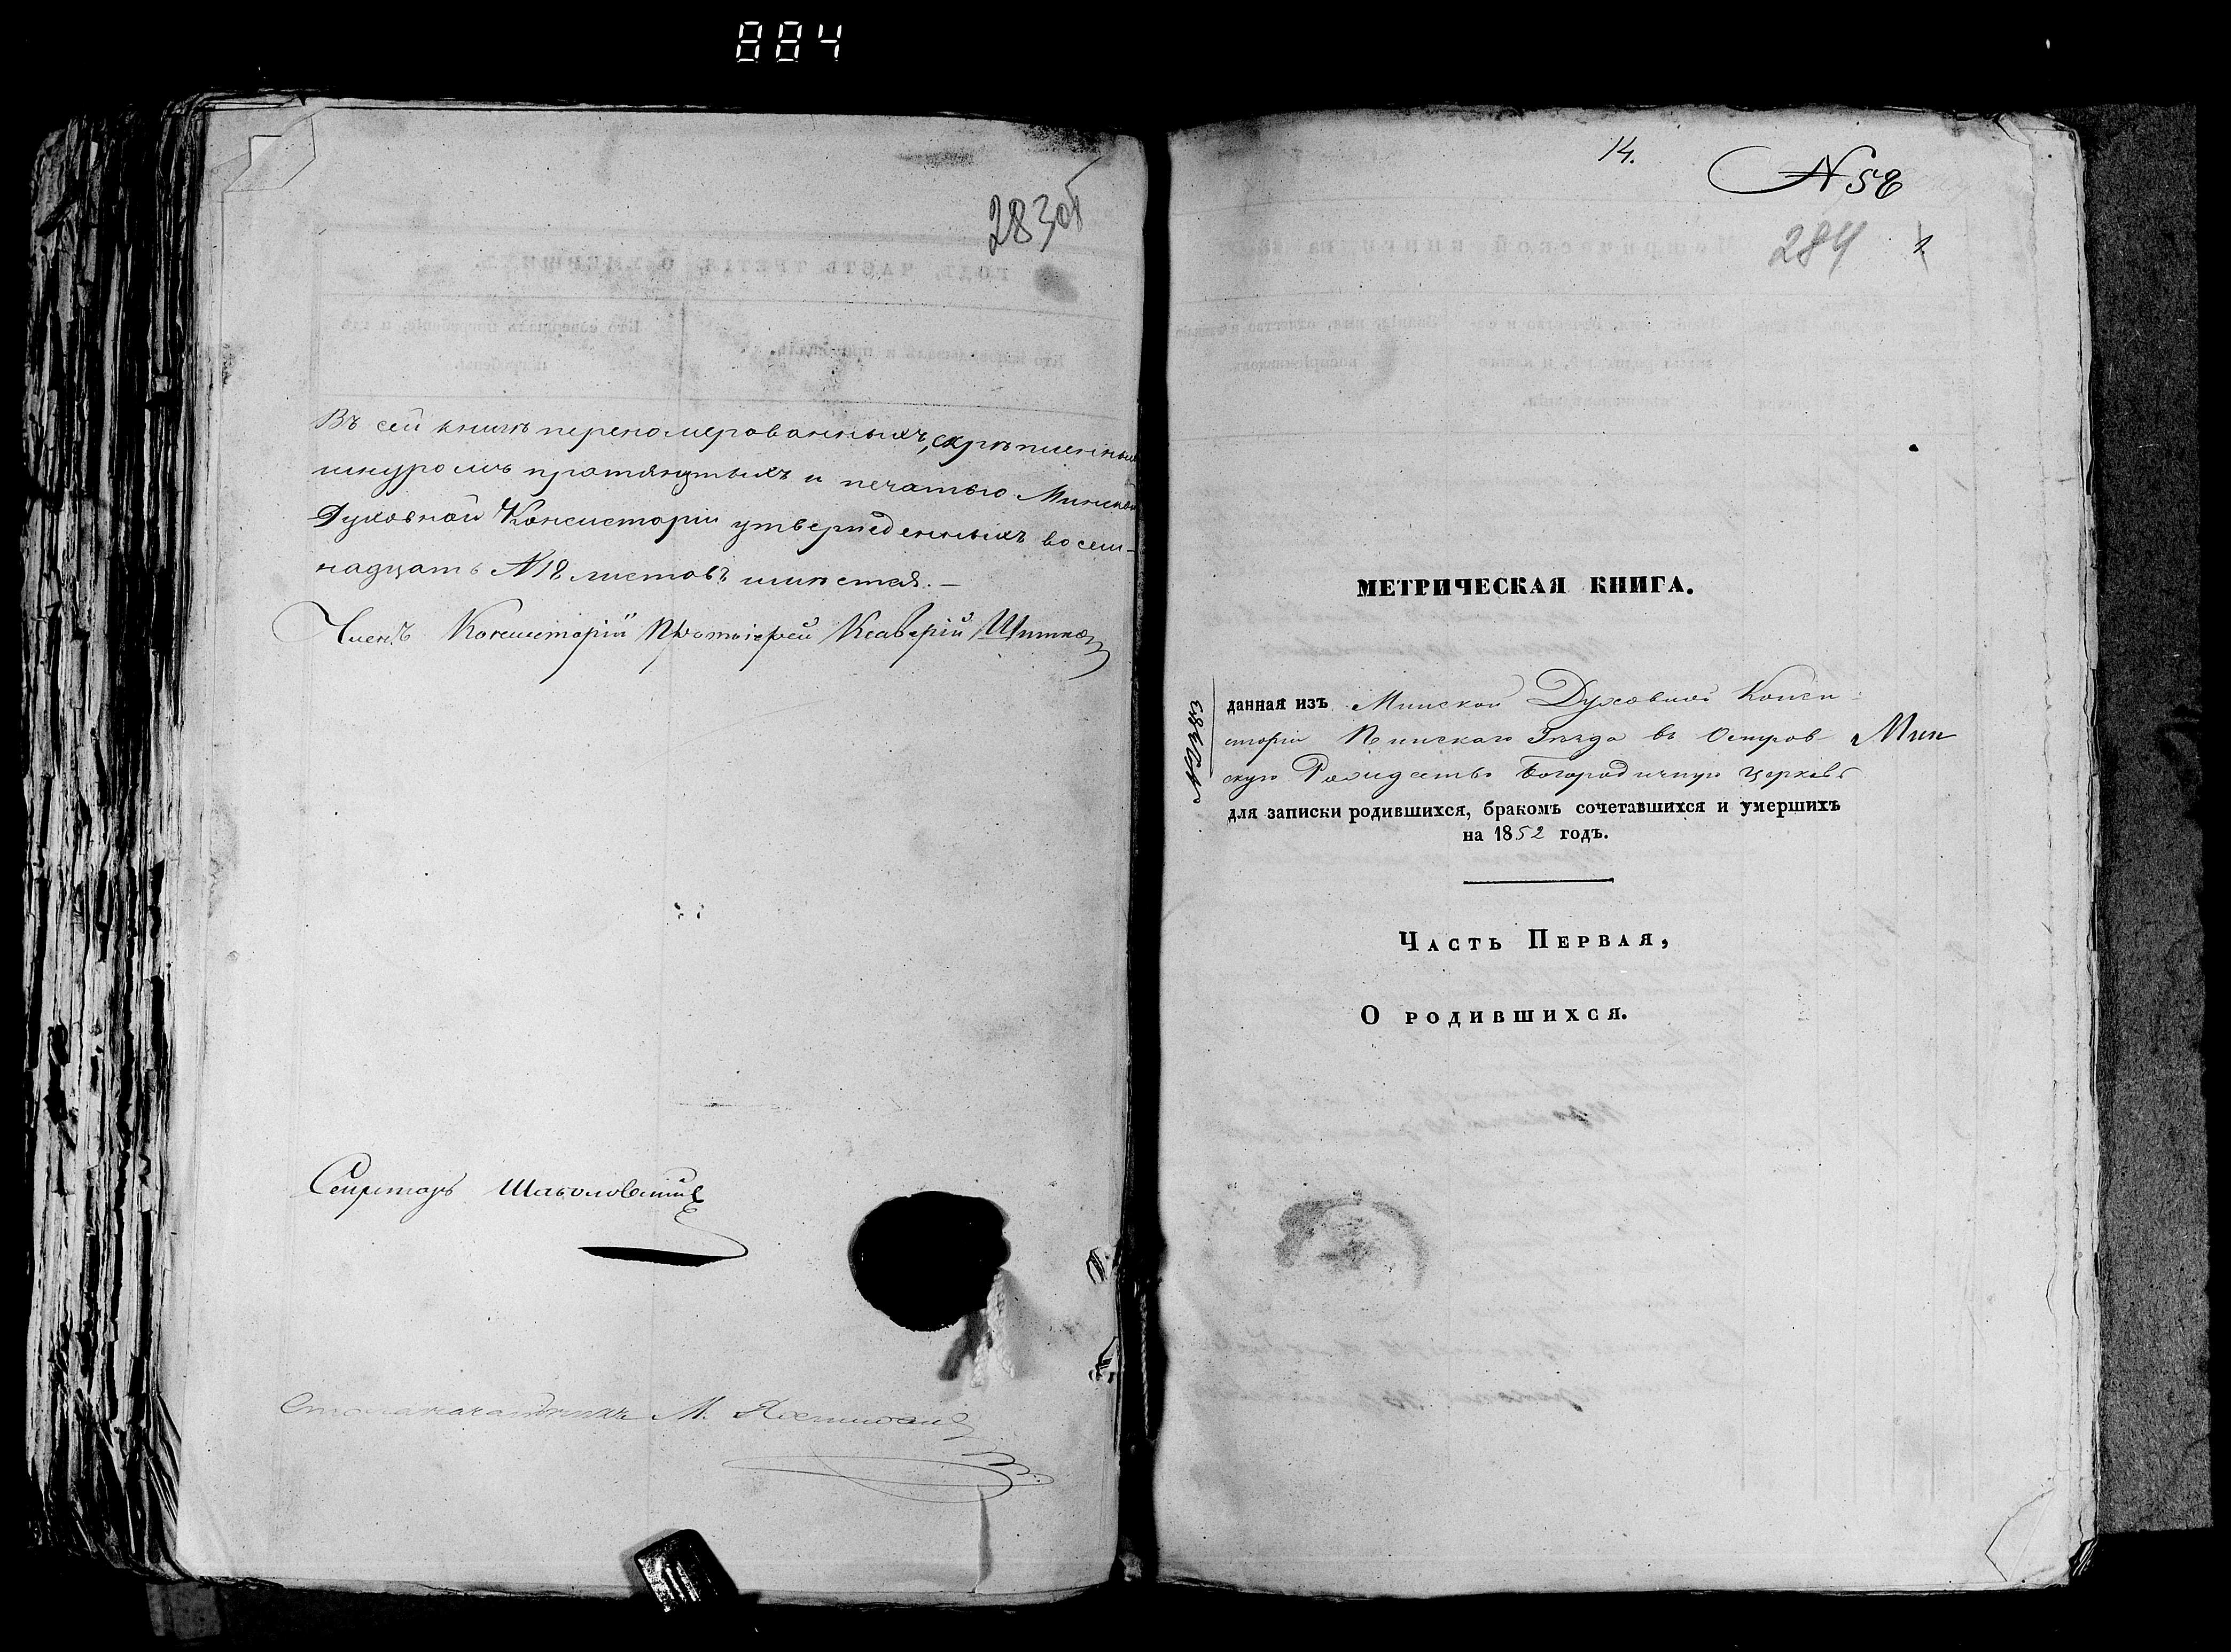 884
283об
Въ сей книгѣ перенумерованныхъ, скрѣпленныхъ
шнуромъ протянутыхъ и печатью Минской
Духовной Консисторіи утвержденныхъ восем-
надцать №18 листовъ имѣется. —
Членъ Консисторіи Протоіерей Ксаверій
Секретарь
Столоначальникъ М.
14.
№ 58
284
1
МЕТРИЧЕСКАЯ КНИГА.
данная изъ Минской Духовной Конси-
сторіи Пинскаго Уѣзда въ Остров- Мин
скую Рождество Богородичную церковь
для записки родившихся, бракомъ сочетавшихся и умершихъ
на 1852 годъ.
ЧАСТЬ ПЕРВАЯ,
О РОДИВШИХСЯ.